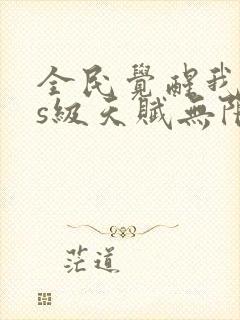 全民覺醒我
s級天賦無限
茫道